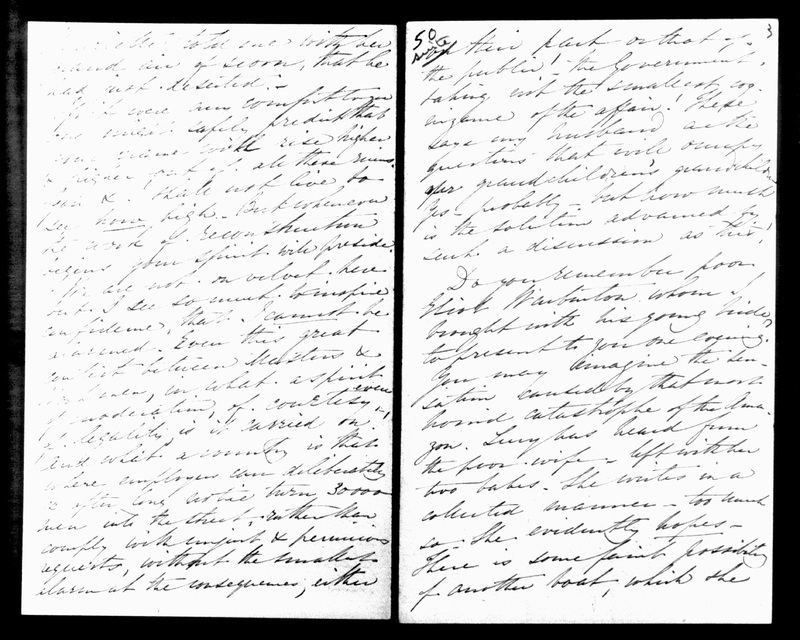 told me with her
grand air of scorn, that he
had not deserted. -
If it were any comfort to you
one might safely predict that
your name will rise higher
& higher out of all these ruins.
You & I shall not live to
see how high. But whenever
the work of reconstruction
begins your spirit will preside.
We are not on velvet here
but I see so much to inspire
confidence, that I cannot be
alarmed. Even this great
conflict between Masters &
men, in what a spirit
of moderation, of courtesy even,
of legality is it carried on.
And what a country is that
where employers can deliberately
& after long notice turn 30000
men into the street, rather than
comply with unjust & pernicious
requests, without the smallest
alarm at the consequences, either
3
50
on their part or that of
the public! - the Government
taking not the smallest cog-
nizance of the affair! These
says my husband are the
questions that will occupy
our grandchildren's grandchildren
Yes - probably - but how much
is the solution advanced by
such a discussion as this!
Do you remember poor
Eliot Warburton whom I
brought with his young bride,
to present to you one evening.
You may imagine the sen-
sation caused by that most
horrid catastrophe of the Ama-
zon. Lucy has heard from
the poor wife - left with her
two babes - She writes in a
collected manner - too much
so. She evidently hopes -
There is some faint possibility
of another boat, which she